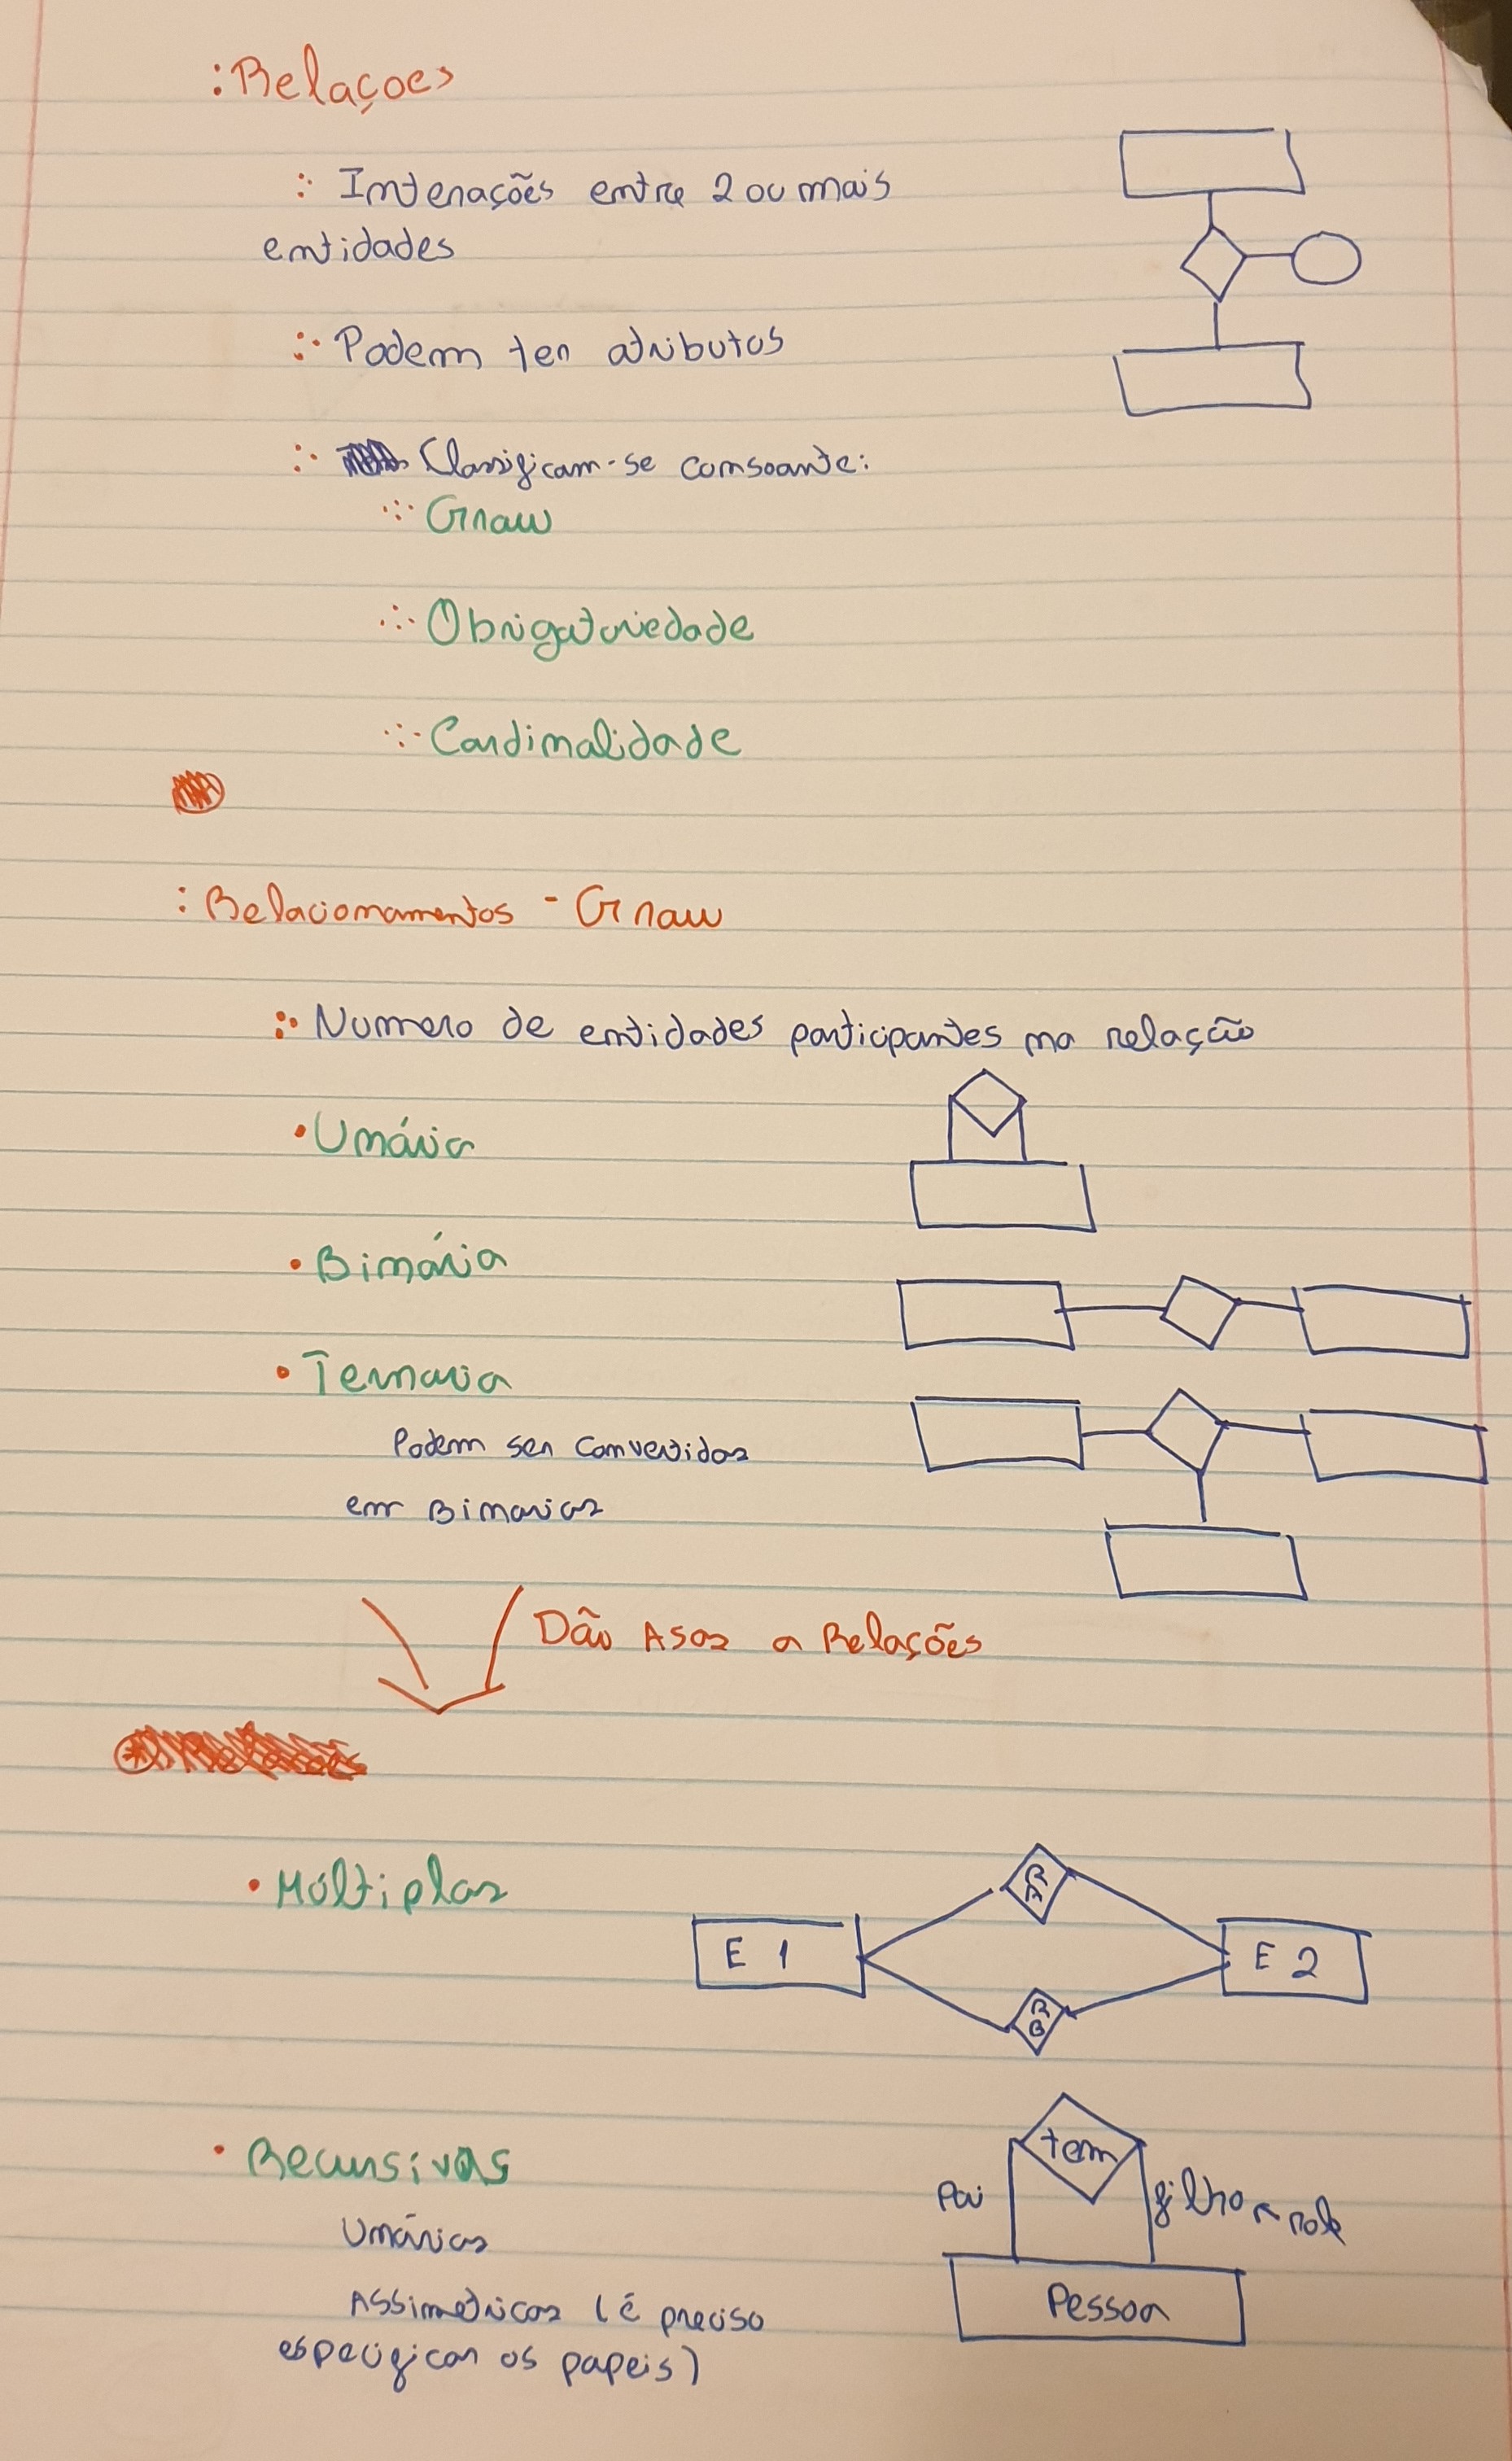 : Relações
:· Interações entre 2 ou mais
entidades
:· Podem ter atributos
:· Classificam-se consoante:
Grau
Obrigatoriedade
Cardinalidade
: Relacionamentos - Grau
:· Numero de entidades participantes na relação
• Unária
• Binária
• Ternaria
Podem ser convertidas
em Binarias
Dão Asas a Relações
• Múltiplas
R
A
E 1
E 2
R
B
• Recursivas
tem
Pai
filho
role
Unárias
Pessoa
Assimetricas (é preciso
especificar os papeis)